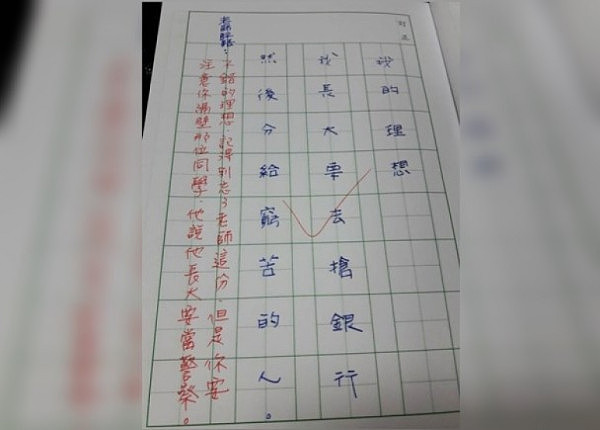 訂正
我的理想
我長大票去搶銀行
然後分給窮苦的人。
老師評語：
不錯的理想，記得別忘了老師這份，但是你要
注意你隔壁那位同學，他說他長大要當警察。